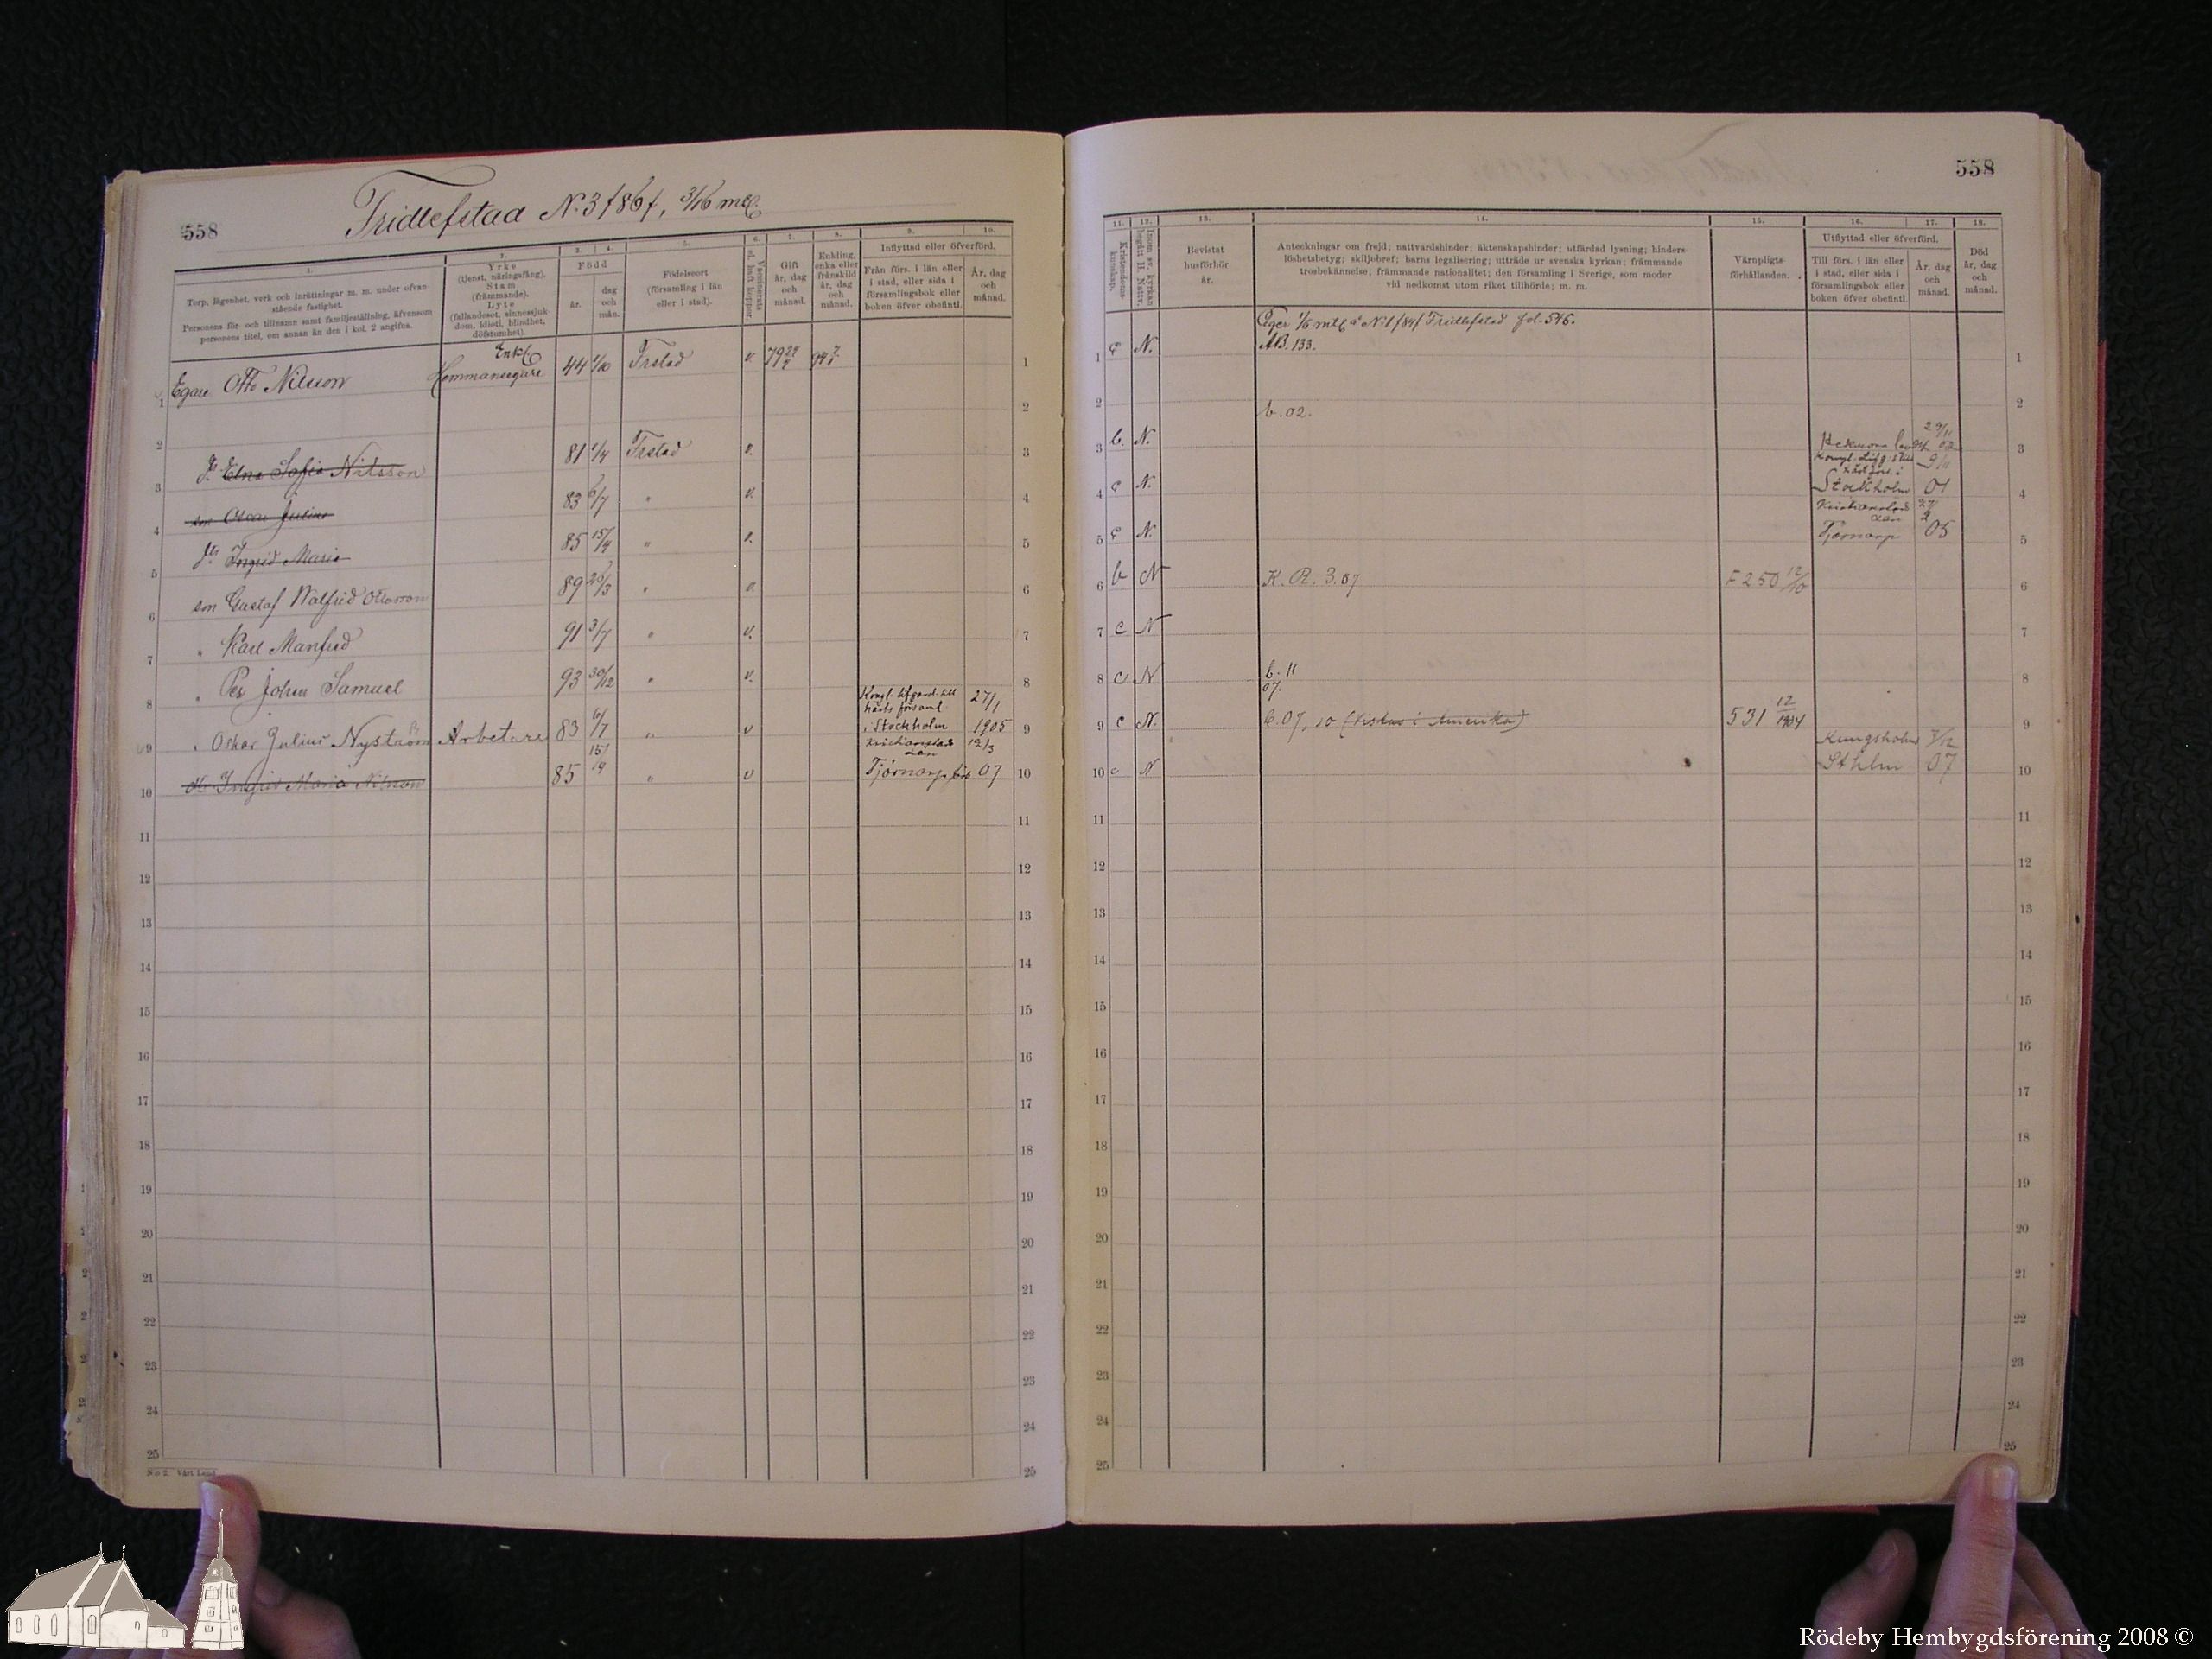 558
Fridlefstad No 3 /86/, 3/16 mtl
1.
2.
3.
4.
5.
6.
7.
8.
9.
10.
Torp, lägenhet, verk och inrättningar m. m. under ofvan-
stående fastighet.
Personens för- och tillnamn samt familjeställning, äfvensom
personens titel, om annan än den i kol. 2 angifna.
Yrke
(tjenst, näringsfång).
Stam
(främmande).
Lyte
(fallandesot, sinnessjuk-
dom, idioti, blindhet,
döfstumhet).
Född
år.
dag
och
mån.
Födelseort
(församling i län
eller i stad).
Vaccinerats
el. haft koppor.
Gift
år, dag
och
månad.
Enkling,
enka eller
frånskild
år, dag
och
månad.
Inflyttad eller öfverförd.
Från förs. i län eller
i stad, eller sida i
församlingsbok eller
boken öfver obefintl.
År, dag
och
månad.
1 Egare Otto Nilsson Enkl. Hemmansegare 44 1/10 Frstad v. 79 94 1
2 2
3 Elna Sofia Nilsson 81 1/4 Frstad v. 3
4 son Oscar Julius 83 6/7 " v. 4
5 Ingrid Maria 85 15/4 " v. 5
6 son Gustaf Walfrid Ottosson 89 26/3 " v. 6
7 " Karl Manfred 91 3/7 " v. 7
8 " Per Johan Samuel 93 30/12 " v. 8
9 " Oskar Julius Nyström Arbetare 83 6/7 " v i Stockholm 27/1 1905 9
10 dr Ingrid Maria Nilsson 85 15/4 " v Kristianstads län Tjörnarp 12/3 07 10
11 11
12 12
13 13
14 14
15 15
16 16
17 17
18 18
19 19
20 20
21 21
22 22
23 23
24 24
25 25
No 2. Vårt Land
558
11.
12.
13.
14.
15.
16.
17.
18.
Kristendoms-
kunskap.
Inom sv. kyrkan
begått H. Nattv.
Bevistat
husförhör
år.
Anteckningar om frejd; nattvardshinder; äktenskapshinder; utfärdad lysning; hinders-
löshetsbetyg; skiljobref; barns legalisering; utträde ur svenska kyrkan; främmande
trosbekännelse; främmande nationalitet; den församling i Sverige, som moder
vid nedkomst utom riket tillhörde; m. m.
Värnpligts-
förhållanden.
Utflyttad eller öfverförd.
Till förs. i län eller
i stad, eller sida i
församlingsbok eller
boken öfver obefintl.
År, dag
och
månad.
Död
år, dag
och
månad.
Eger 1/6 mtl å No 1 /84/ Fridlefstad fol. 546.
1 c N. AB. 133. 1
2 b. 02. 2
3 b. N. 29/11 02 3
4 c N. Stockholm 9/11 01 4
5 c N. Kristianstads län Tjörnarp 05 5
6 b N K. R. 3. 07 F 250 12/10 6
7 c N 7
8 c N b. 11 07. 8
9 c N. b. 07, 10 (vistas i Amerika) 531 12/1904 9
10 c N Kungsholm Sthlm 3/12 07 10
11 11
12 12
13 13
14 14
15 15
16 16
17 17
18 18
19 19
20 20
21 21
22 22
23 23
24 24
25 25
Rödeby Hembygdsförening 2008 ©